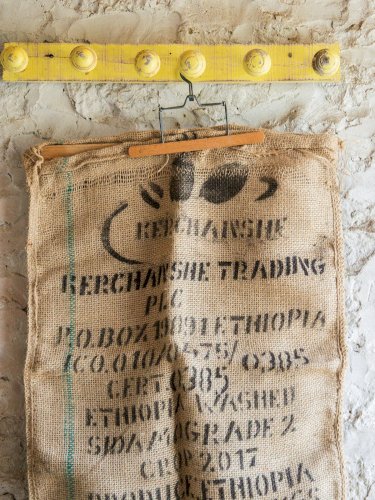 KERCHANSHE
KERCHANSHE TRADING
PLC
P.O.BOX 19891 ETHIOPIA
ICO.010/0475/0385
CERT.0385
ETHIOPIA WASHED
SIDAMO GRADE 2
CROP 2017
PRODUCE ETHIOPIA